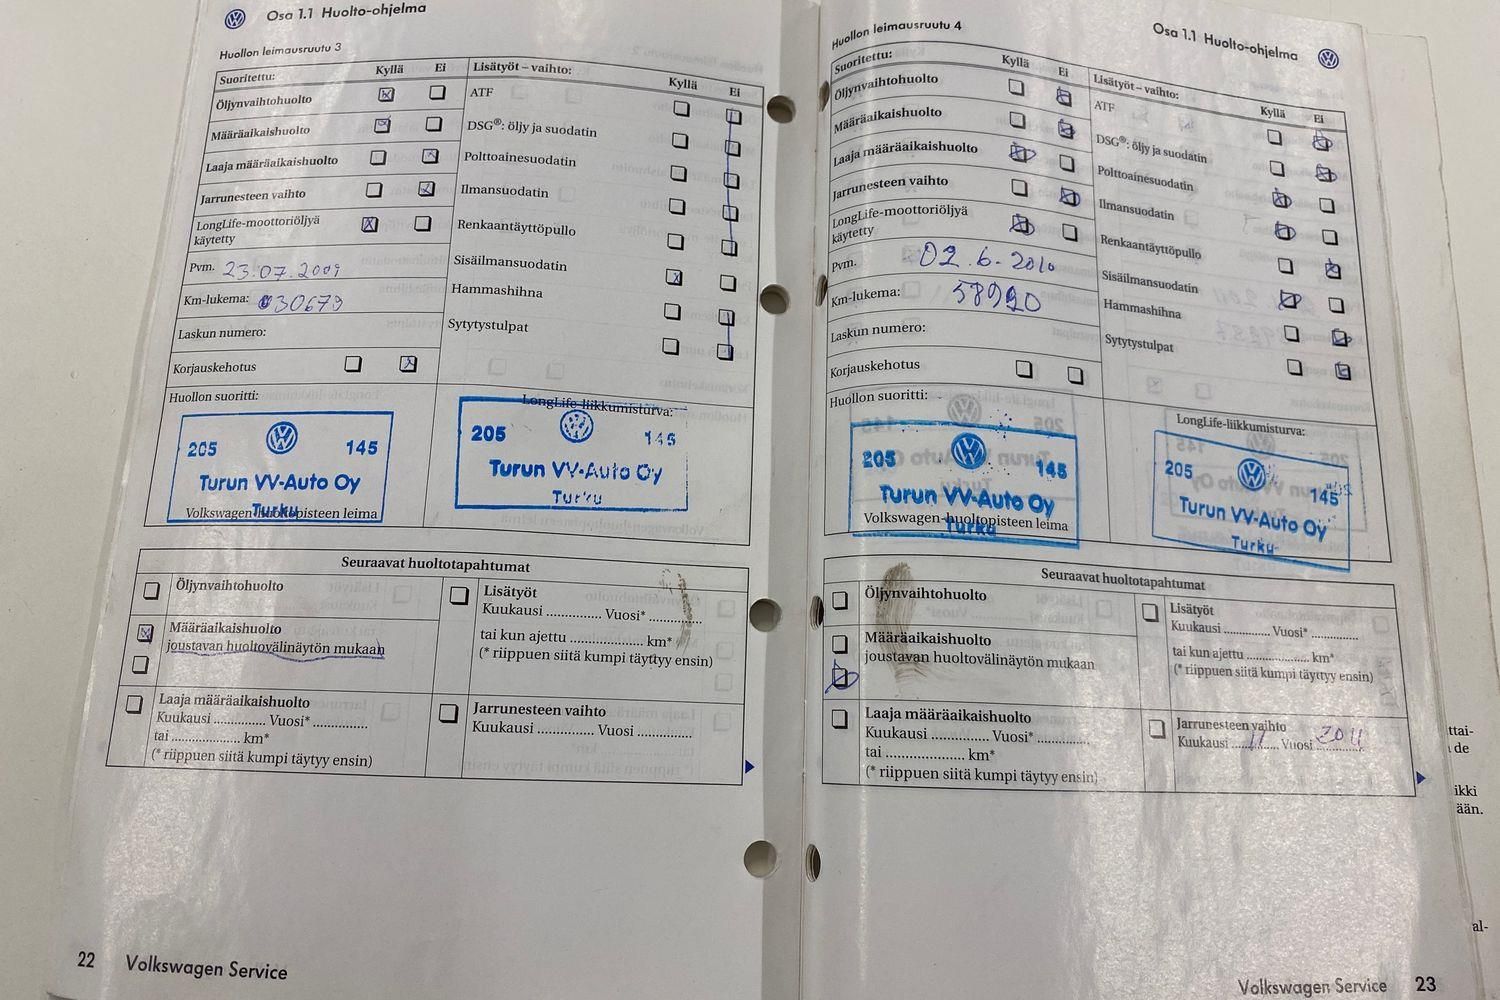 Osa 1.1 Huolto-ohjelma
Huollon leimausruutu 3
Suoritettu: Kyllä Ei
Öljynvaihtohuolto
Määräaikaishuolto
Laaja määräaikaishuolto
Jarrunesteen vaihto
LongLife-moottoriöljyä
käytetty
Pvm. 23.07.2009
Km-lukema: 030679
Laskun numero:
Korjauskehotus
Lisätyöt – vaihto: Kyllä Ei
ATF
DSG®: öljy ja suodatin
Polttoainesuodatin
Ilmansuodatin
Renkaantäyttöpullo
Sisäilmansuodatin
Hammashihna
Sytytystulpat
Huollon suoritti:
205 145
Turun VV-Auto Oy
Turku
Volkswagen-huoltopisteen leima
LongLife-liikkumisturva:
205 145
Turun VV-Auto Oy
Turku
Seuraavat huoltotapahtumat
Öljynvaihtohuolto
Määräaikaishuolto
joustavan huoltovälinäytön mukaan
Laaja määräaikaishuolto
Kuukausi ............. Vuosi* ..............
tai ................. km*
(* riippuen siitä kumpi täytyy ensin)
Lisätyöt
Kuukausi ............. Vuosi* .............
tai kun ajettu .................. km*
(* riippuen siitä kumpi täytyy ensin)
Jarrunesteen vaihto
Kuukausi .............. Vuosi ..............
22 Volkswagen Service
Osa 1.1 Huolto-ohjelma
Huollon leimausruutu 4
Suoritettu: Kyllä Ei
Öljynvaihtohuolto
Määräaikaishuolto
Laaja määräaikaishuolto
Jarrunesteen vaihto
LongLife-moottoriöljyä
käytetty
Pvm. 02.6.2010
Km-lukema: 58920
Laskun numero:
Korjauskehotus
Lisätyöt – vaihto: Kyllä Ei
ATF
DSG®: öljy ja suodatin
Polttoainesuodatin
Ilmansuodatin
Renkaantäyttöpullo
Sisäilmansuodatin
Hammashihna
Sytytystulpat
Huollon suoritti:
205 145
Turun VV-Auto Oy
Turku
Volkswagen-huoltopisteen leima
LongLife-liikkumisturva:
205 145
Turun VV-Auto Oy
Turku
Seuraavat huoltotapahtumat
Öljynvaihtohuolto
Määräaikaishuolto
joustavan huoltovälinäytön mukaan
Laaja määräaikaishuolto
Kuukausi .............. Vuosi* ..............
tai .................... km*
(* riippuen siitä kumpi täytyy ensin)
Lisätyöt
Kuukausi ............. Vuosi* .............
tai kun ajettu .................. km*
(* riippuen siitä kumpi täytyy ensin)
Jarrunesteen vaihto
Kuukausi 11 Vuosi 2011
Volkswagen Service 23
ttai-
de
ikki
ään.
al-